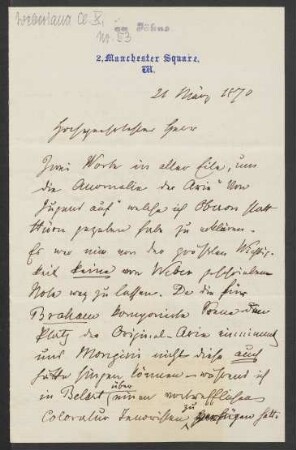 Weberiana Cl. X,
No. 53
2, Manchester Square,
W.
21 März 1870
Hochgeehrtester Herr
Zwei Worte in aller Eile, um
die Anomalie der Aria "Von
Jugend auf" welche ich Oberon statt
Hüon gegeben habe zu erklären.
Es war mir von der größten Wichtig-
keit keine von Weber geschriebene
Note weg zu lassen. Da die für
Braham komponirte Scene den
Platz der Original-Arie einnimmt
und Mongini nicht diese auch
hätte singen können – während ich
in Belart über einen vortrefflichen
Coloratur Tenoristen zu verfügen hatte